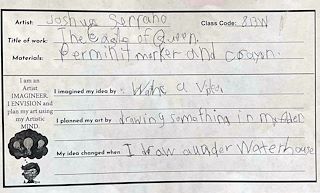 Artist: Joshua Serrano Class Code: 8BW1
Title of work: The Eagle of Queen.
Materials: Perminit morker and crayon.
I am an
Artist
IMAGINEER.
I ENVISION and
plan my art using
my Artistic
MIND.
I imagined my idea by: a
I planned my art by drawing somothing in
My idea changed when I draw